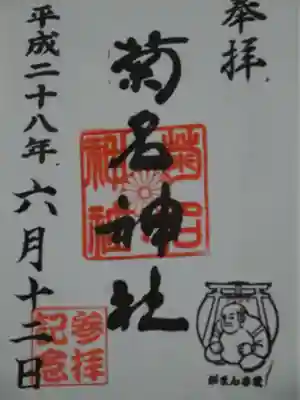 奉拝
菊名神社
菊名
神社
平成二十八年六月十二日
参拝
記念